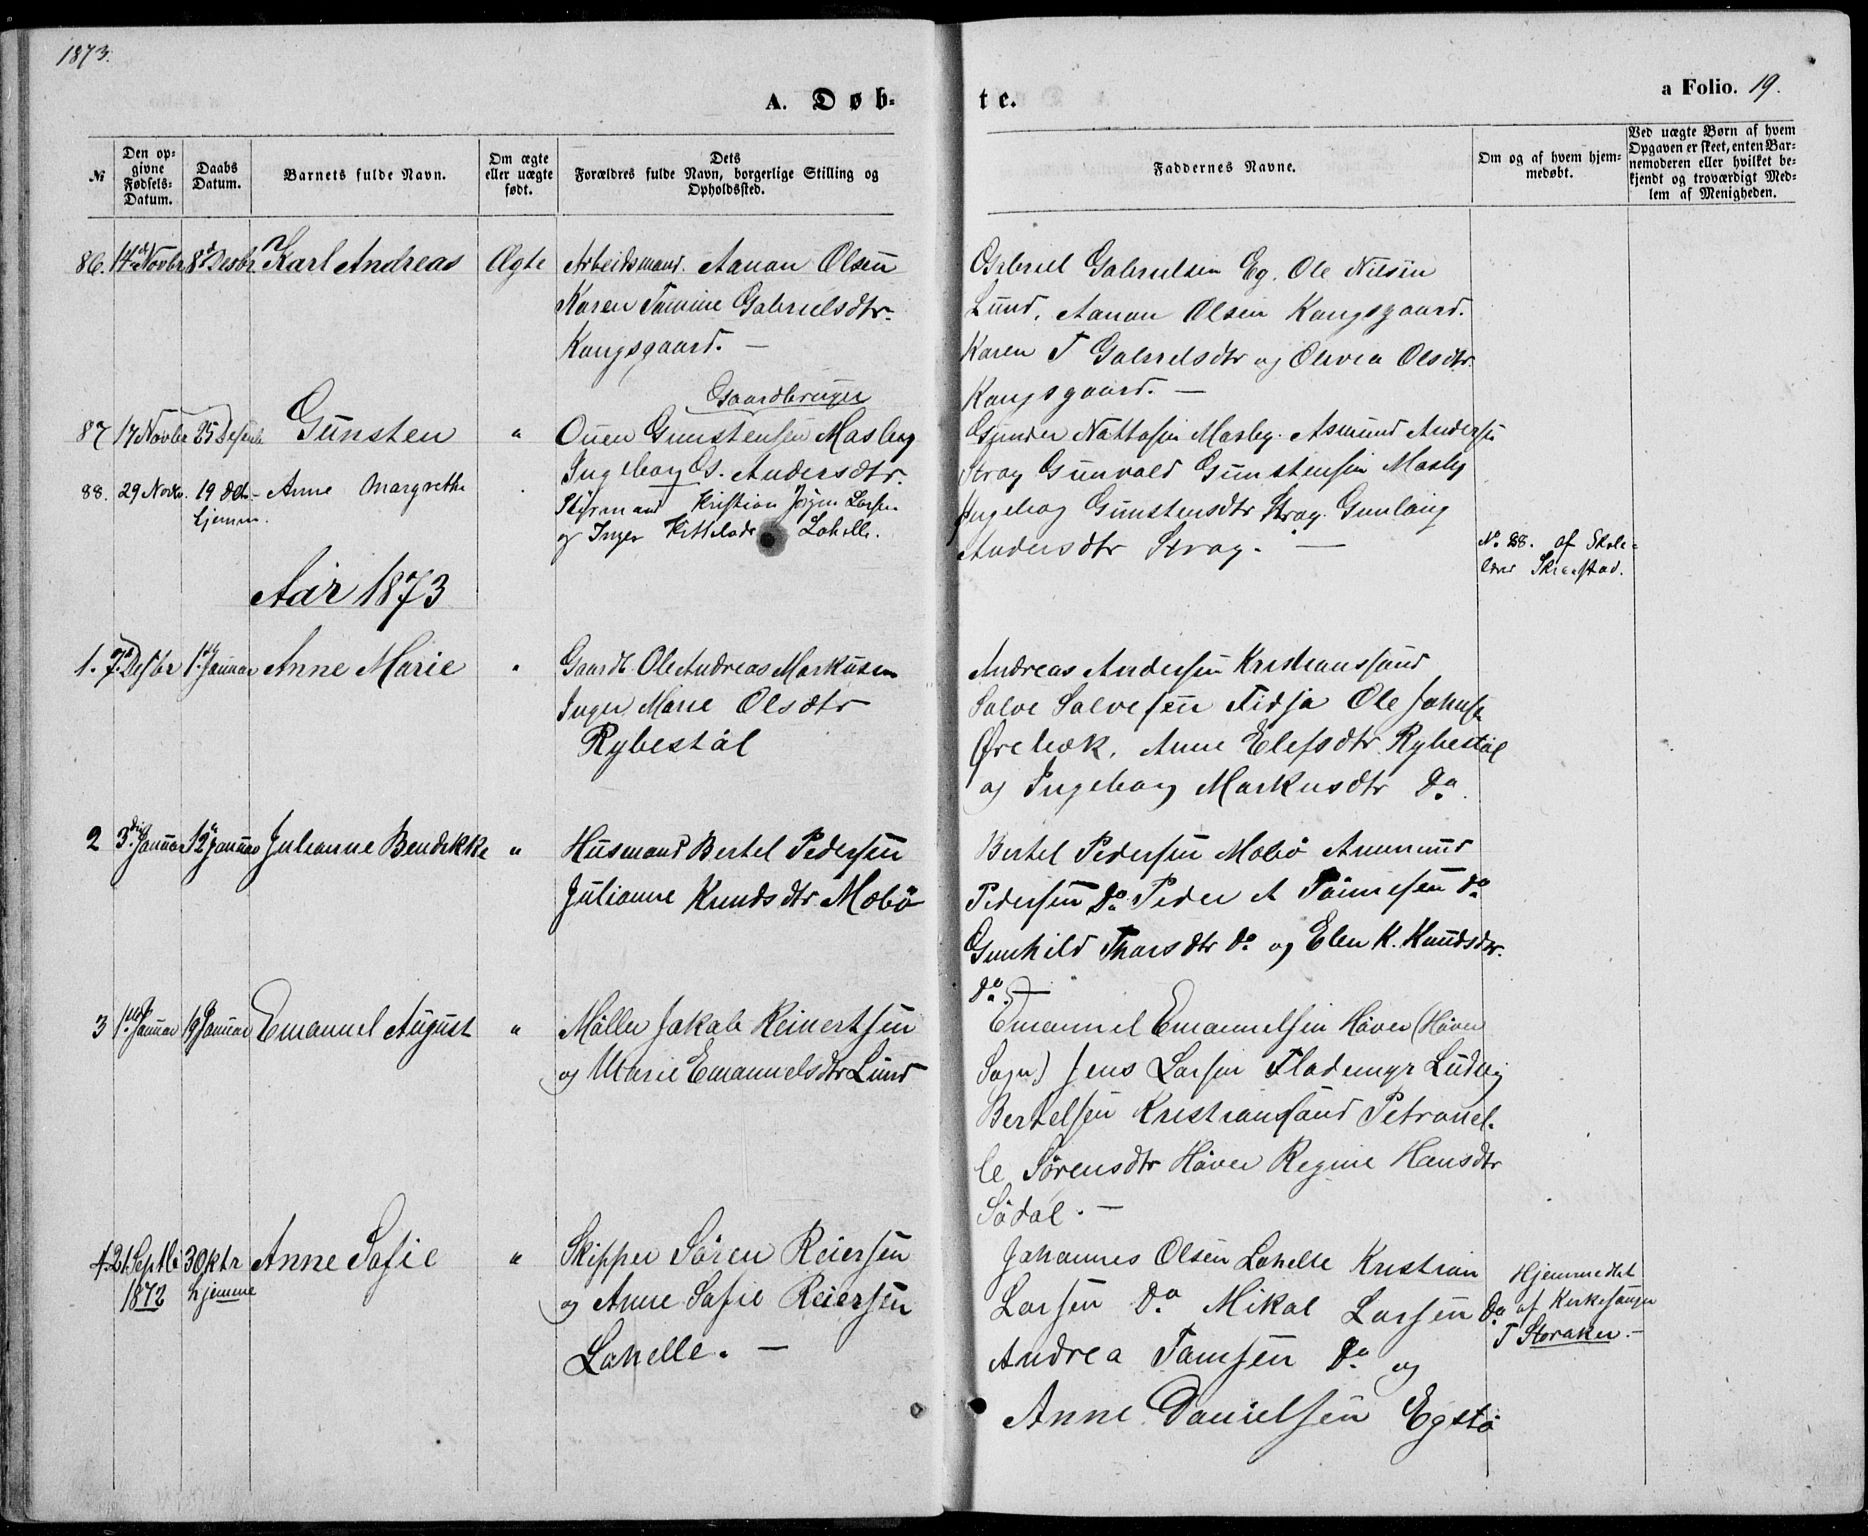 1873.
A. Døb-
te.
a Folio. 19.
№
Den op-
givne
Fødsels-
Datum.
Daabs
Datum.
Barnets fulde Navn.
Om ægte
eller uægte
født.
Dets
Forældres fulde Navn, borgerlige Stilling og
Opholdssted.
Faddernes Navne.
Om og af hvem hjem-
medøbt.
Ved uægte Børn af hvem
Opgaven er skeet, enten Bar-
nemoderen eller hvilket be-
kjendt og troværdigt Med-
lem af Menigheden.
86. 14de Novbr 8d Desbr Karl Andreas Ægte Arbeidsmand. Aanon Olsen
Karen Tomine Gabrielsdtr.
Kongsgaard. —
Gabriel Gabrielsen Eg. Ole Nilsen
Lund, Aanon Olsen Kongsgaard.
Karen T Gabrielsdtr og Olevea Olsdtr.
Kongsgaard. —
Gaardbruger
87 17 Novbr 25 Desemb Gunsten " Ouen Gunstensen Mosby
Ingeborg G. Andersdtr.
Gunder Nattosen Mosby. Asmund Anders
Stray Gunvald Gunstensen Mosby
Ingebog Gunstensdtr Stray. Gunlaug
Andersdtr Stray. —
88. 29 Novbr. 19 Dcb. Anne Margrethe
hjemme.
Styrmand Kristian Jörgen Larsen
og Inger Kittelsdr Lohelle.
No. 88. af Skole-
lærer Skraastad.
Aar 1873
1. 7de Desbr 1ste Januar Anne Marie " Gaardb. Ole Andreas Markusen
Inger Marie Olsdtr
Rybestøl
Andreas Andersen Kristianssand
Salve Salvesen Tidsja Ole Johns
Ørebæk, Anne Elefsdtr Rybestøl
og Ingeborg Markusdtr Do.
2 3die Januar 12 Januar Julianne Bendikke " Husmand Bertel Pedersen
Julianne Knudsdtr Mobö
Bertel Pedersen Mobö Ammund
Pedersen Do. Peder A Tönnesen Do
Gunhild Thorsdtr Do og Elen K. Knudsdtr.
Do. —
3 1ste Januar 19 Januar Emanuel August " Møller Jakob Reinertsen
og Marie Emanuelsdtr Lund
Emanuel Emanuelsen Höver (Höver
Sogn) Jens Larsen Flademyr Ludvig
Bertelsen Kristianssand Petronel-
le Sörensdtr Höver Regine Hansdtr
Södal. —
4. 21 Septb 30 ktr Anne Sofie " Skipper Sören Reiersen
1872 hjemme
og Anne Sofie Reiersen
Lohelle. —
Johannes Olsen Lohelle Kristian
Larsen Do Mikal Larsen Do
Andrea Tomsen Do. og
Anne Danielsen Egstö
Hjemmedbt
af Kirkesanger
T Storaker. —